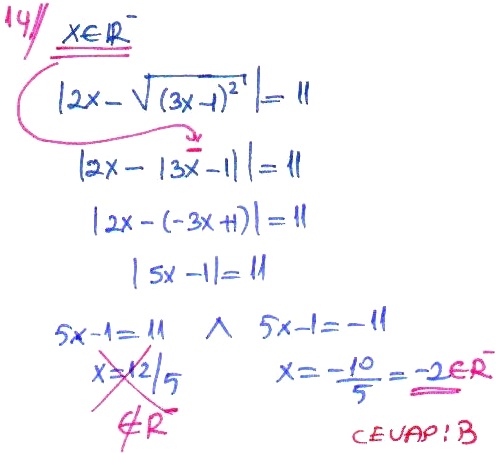 14// x∈R⁻
|2x - √(3x-1)²| = 11
|2x - |3x-1|| = 11
|2x-(-3x+1)| = 11
|5x-1| = 11
5x-1=11 ∧ 5x-1=-11
x=12/5 x=-10/5=-2∈R⁻
∉R⁻
CEVAP: B